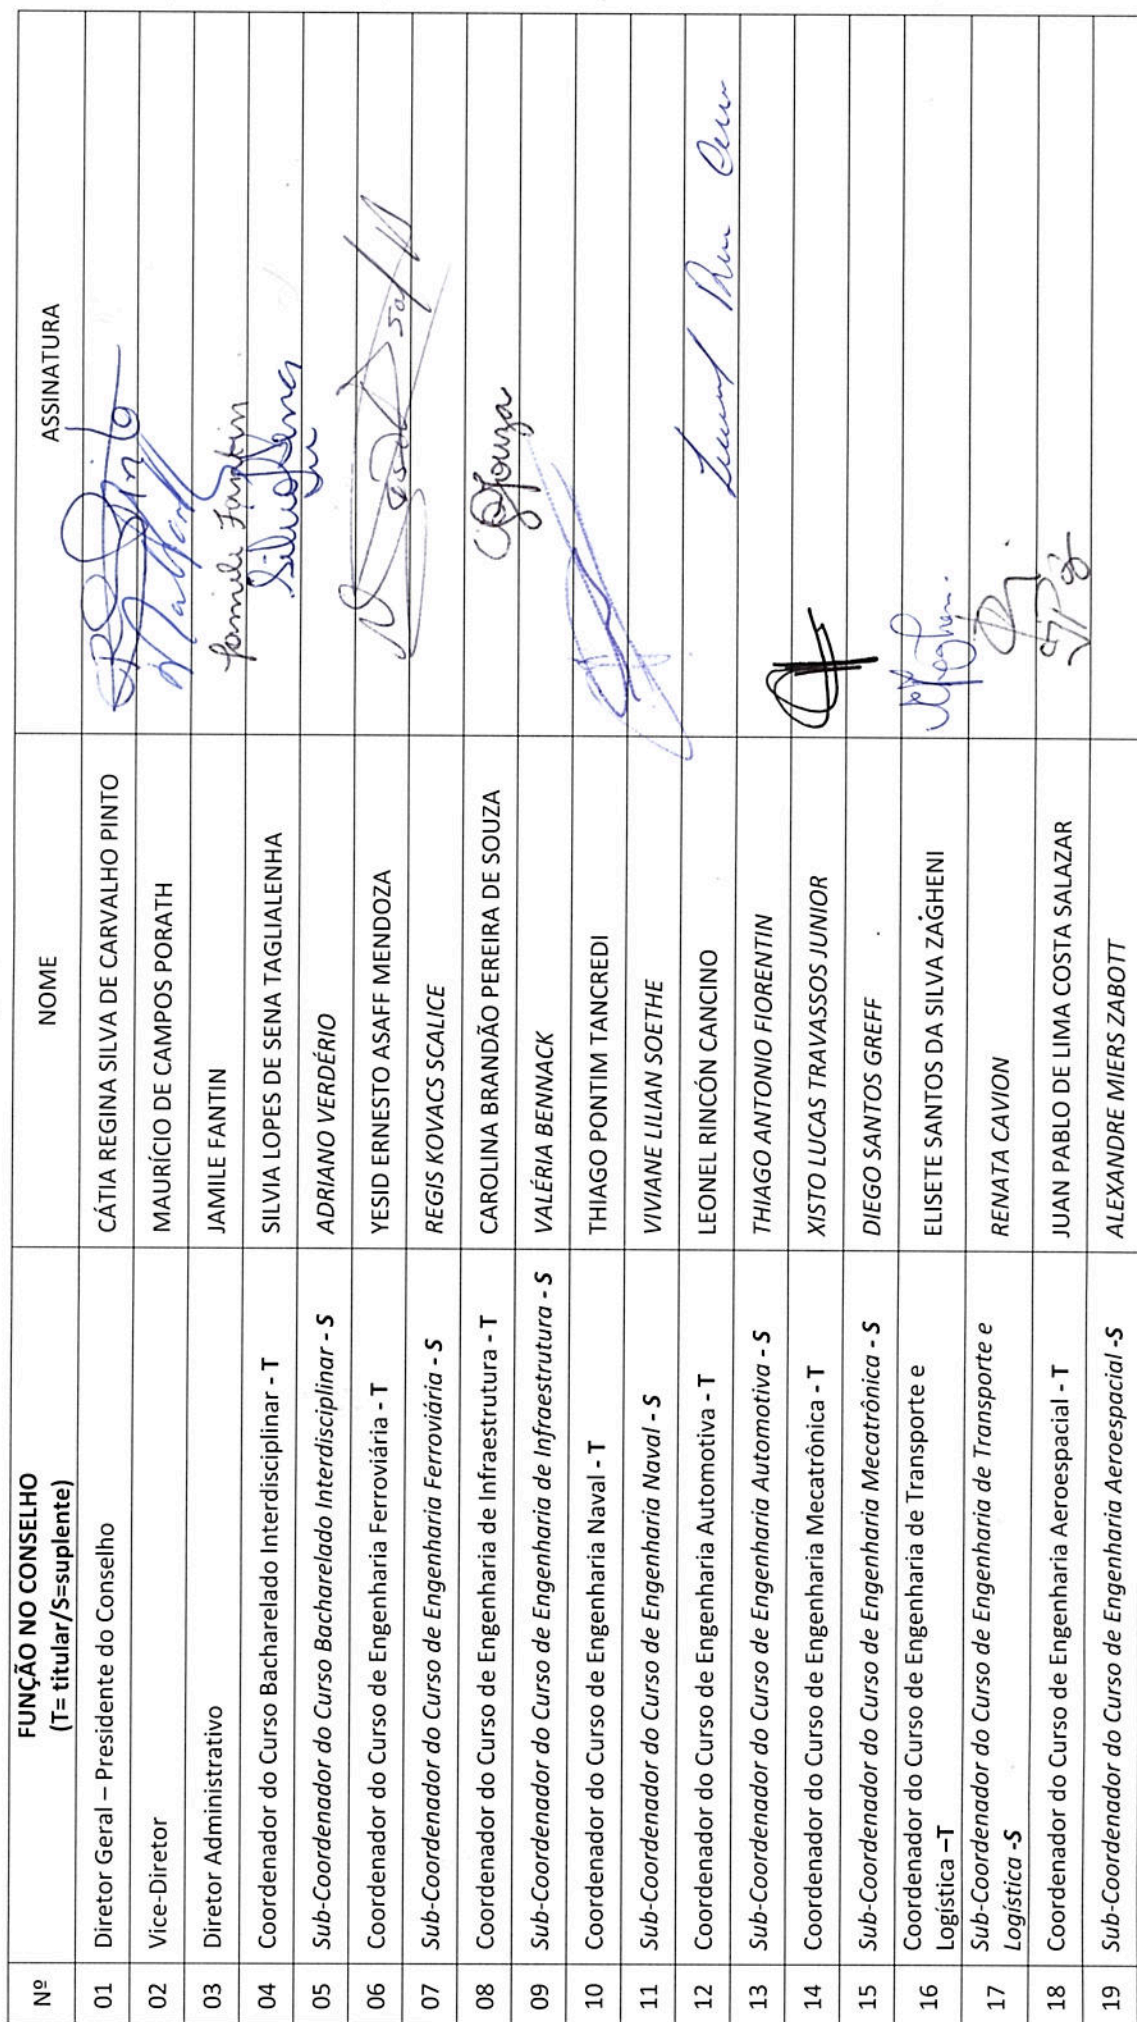 Nº FUNÇÃO NO CONSELHO NOME ASSINATURA
(T= titular/S=suplente)
01 Diretor Geral – Presidente do Conselho CÁTIA REGINA SILVA DE CARVALHO PINTO Pinto
02 Vice-Diretor MAURÍCIO DE CAMPOS PORATH
03 Diretor Administrativo JAMILE FANTIN Jamile Fantin
04 Coordenador do Curso Bacharelado Interdisciplinar - T SILVIA LOPES DE SENA TAGLIALENHA
05 Sub-Coordenador do Curso Bacharelado Interdisciplinar - S ADRIANO VERDÉRIO
06 Coordenador do Curso de Engenharia Ferroviária - T YESID ERNESTO ASAFF MENDOZA
07 Sub-Coordenador do Curso de Engenharia Ferroviária - S REGIS KOVACS SCALICE
08 Coordenador do Curso de Engenharia de Infraestrutura - T CAROLINA BRANDÃO PEREIRA DE SOUZA Souza
09 Sub-Coordenador do Curso de Engenharia de Infraestrutura - S VALÉRIA BENNACK
10 Coordenador do Curso de Engenharia Naval - T THIAGO PONTIM TANCREDI
11 Sub-Coordenador do Curso de Engenharia Naval - S VIVIANE LILIAN SOETHE
12 Coordenador do Curso de Engenharia Automotiva - T LEONEL RINCÓN CANCINO
13 Sub-Coordenador do Curso de Engenharia Automotiva - S THIAGO ANTONIO FIORENTIN
14 Coordenador do Curso de Engenharia Mecatrônica - T XISTO LUCAS TRAVASSOS JUNIOR
15 Sub-Coordenador do Curso de Engenharia Mecatrônica - S DIEGO SANTOS GREFF
16 Coordenador do Curso de Engenharia de Transporte e ELISETE SANTOS DA SILVA ZAGHENI
Logística –T
17 Sub-Coordenador do Curso de Engenharia de Transporte e RENATA CAVION
Logística -S
18 Coordenador do Curso de Engenharia Aeroespacial - T JUAN PABLO DE LIMA COSTA SALAZAR
19 Sub-Coordenador do Curso de Engenharia Aeroespacial -S ALEXANDRE MIERS ZABOTT